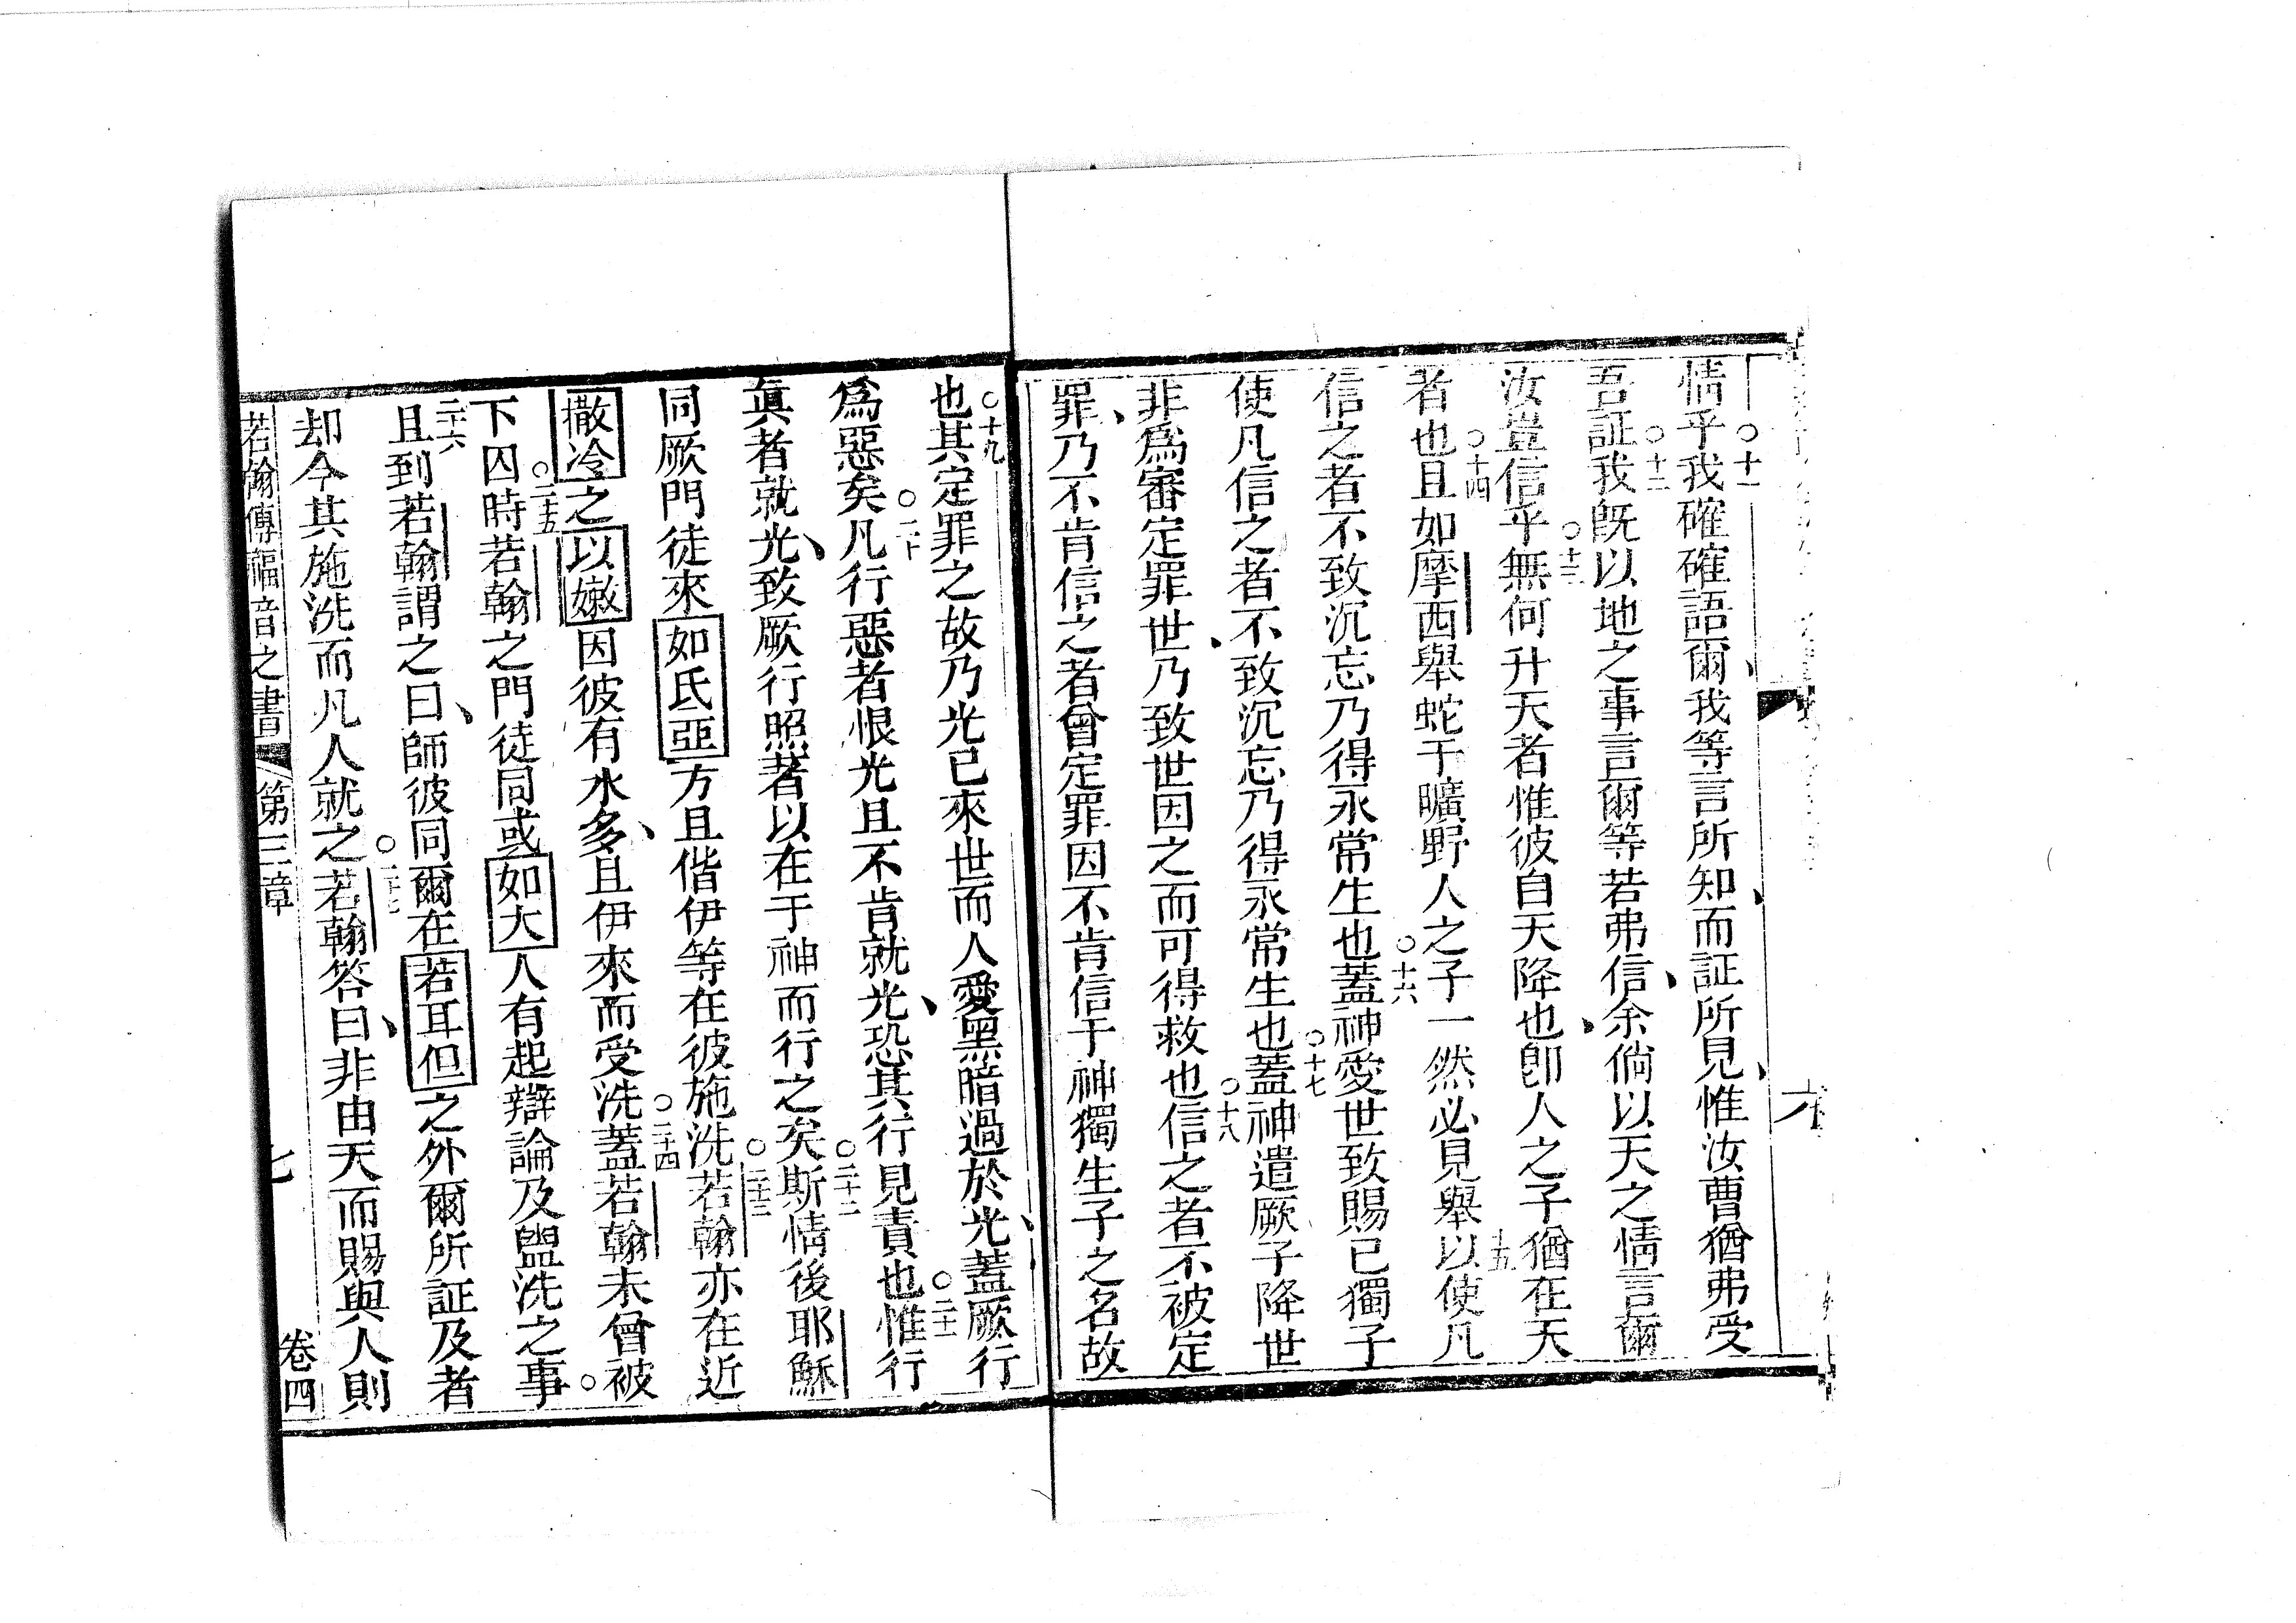 情乎○十一我確確語爾、我等言所知、而証所見、惟汝曹猶弗受
吾証○十二我既以地之事言爾等若弗信、余倘以天之情言爾
汝豈信乎○十三無何升天者惟彼自天降也、卽人之子猶在天
者也○十四且如摩西舉蛇于曠野人之子一然必見舉十五以使凡
信之者不致沉忘乃得永常生也○十六蓋神愛世致賜己獨子
使凡信之者不致沉忘乃得永常生也○十七蓋神遣厥子降世
非爲審定罪世、乃致世因之而可得救也○十八信之者不被定
罪、乃不肯信之者曾定罪因不肯信于神獨生子之名故
也○十九其定罪之故乃光已來世而人愛黑暗過於光、蓋厥行
爲惡矣○二十凡行惡者恨光且不肯就光、恐其行見責也○二十一惟行
眞者就光、致厥行照著以在于神而行之矣○二十二斯情後耶穌
同厥門徒來如氏亞方且偕伊等在彼施洗○二十三若翰亦在近
撒冷之以嫩因彼有水多、且伊來而受洗○二十四蓋若翰未曾被
下囚○二十五時若翰之門徒同或如大人有起辯論及盥洗之事○
二十六且到若翰謂之曰、師彼同爾在若耳但之外爾所証及者
却今其施洗而凡人就之○二十七若翰答曰、非由天而賜與人則
若翰傳福音之書 第三章 七 卷四